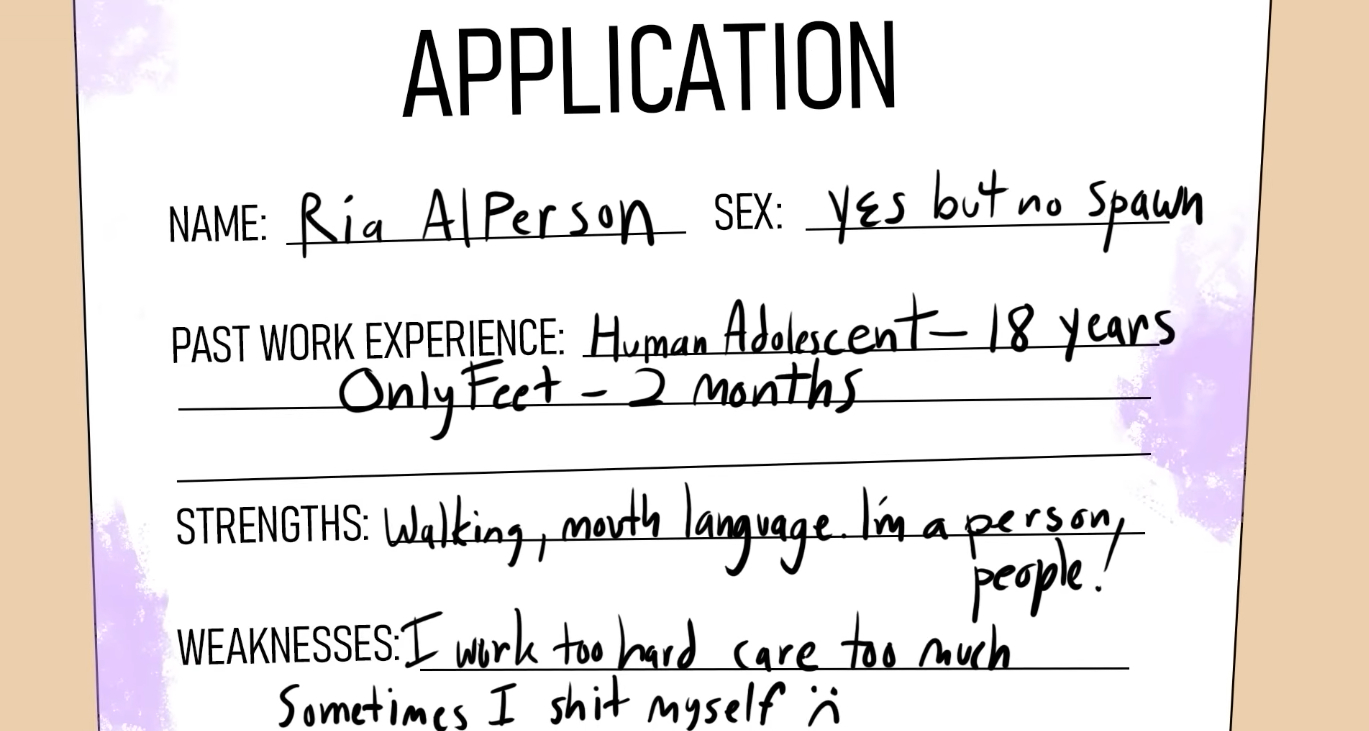 APPLICATION
NAME: Ria AlPerson SEX: yes but no spawn
PAST WORK EXPERIENCE: Human Adolescent - 18 years
OnlyFeet - 2 months
STRENGTHS: Walking, mouth language. I'm a person,
people!
WEAKNESSES: I work too hard care too much
Sometimes I shit myself :(